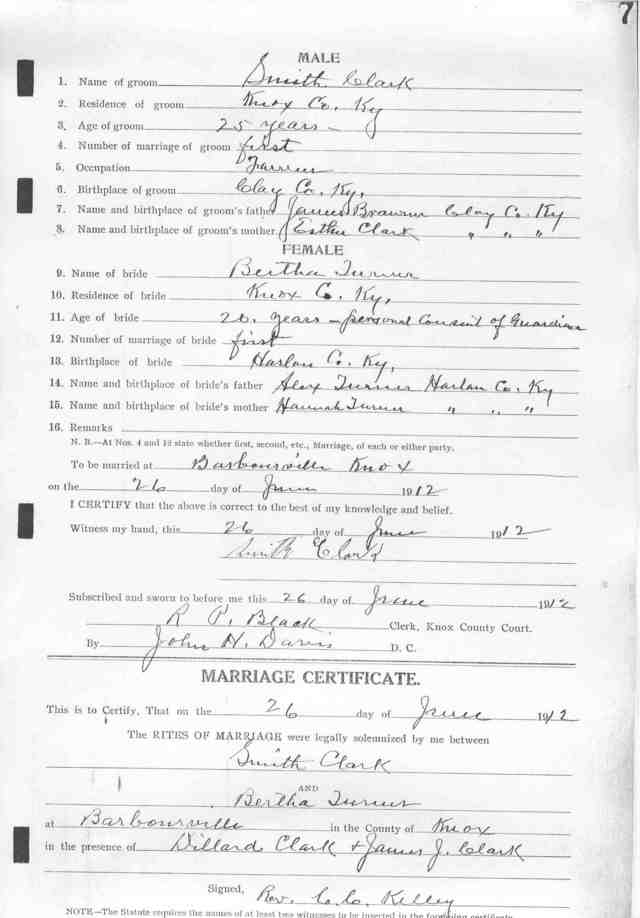 7
MALE
1. Name of groom Smith Clark
2. Residence of groom Knox Co. Ky
3. Age of groom 25 years
4. Number of marriage of groom first
5. Occupation Farmer
6. Birthplace of groom Clay Co. Ky,
7. Name and birthplace of groom's father James Brawner Clay Co. Ky
8. Name and birthplace of groom's mother. Esther Clark " " "
FEMALE
9. Name of bride Bertha Turner
10. Residence of bride Knox Co. Ky,
11. Age of bride 20. years - personal Consent of Guardian
12. Number of marriage of bride first
13. Birthplace of bride Harlan Co. Ky,
14. Name and birthplace of bride's father Alex Turner Harlan Co. Ky
15. Name and birthplace of bride's mother Hannah Turner " " "
16. Remarks
N. B.—At Nos. 4 and 12 state whether first, second, etc., Marriage, of each or either party.
To be married at Barbourville Knox
on the 26 day of June 1912
I CERTIFY that the above is correct to the best of my knowledge and belief.
Witness my hand, this 26 day of June 1912
Smith Clark
Subscribed and sworn to before me this 26 day of June 1912
R P. Black Clerk, Knox County Court.
By John H. Davis D. C.
MARRIAGE CERTIFICATE.
This is to Certify, That on the 26 day of June 1912
The RITES OF MARRIAGE were legally solemnized by me between
Smith Clark
AND
Bertha Turner
at Barbourville in the County of Knox
in the presence of Dillard Clark + James J. Clark
Signed, Rev. C. C. Kelley
NOTE—The Statute requires the names of at least two witnesses to be inserted in the foregoing certificate